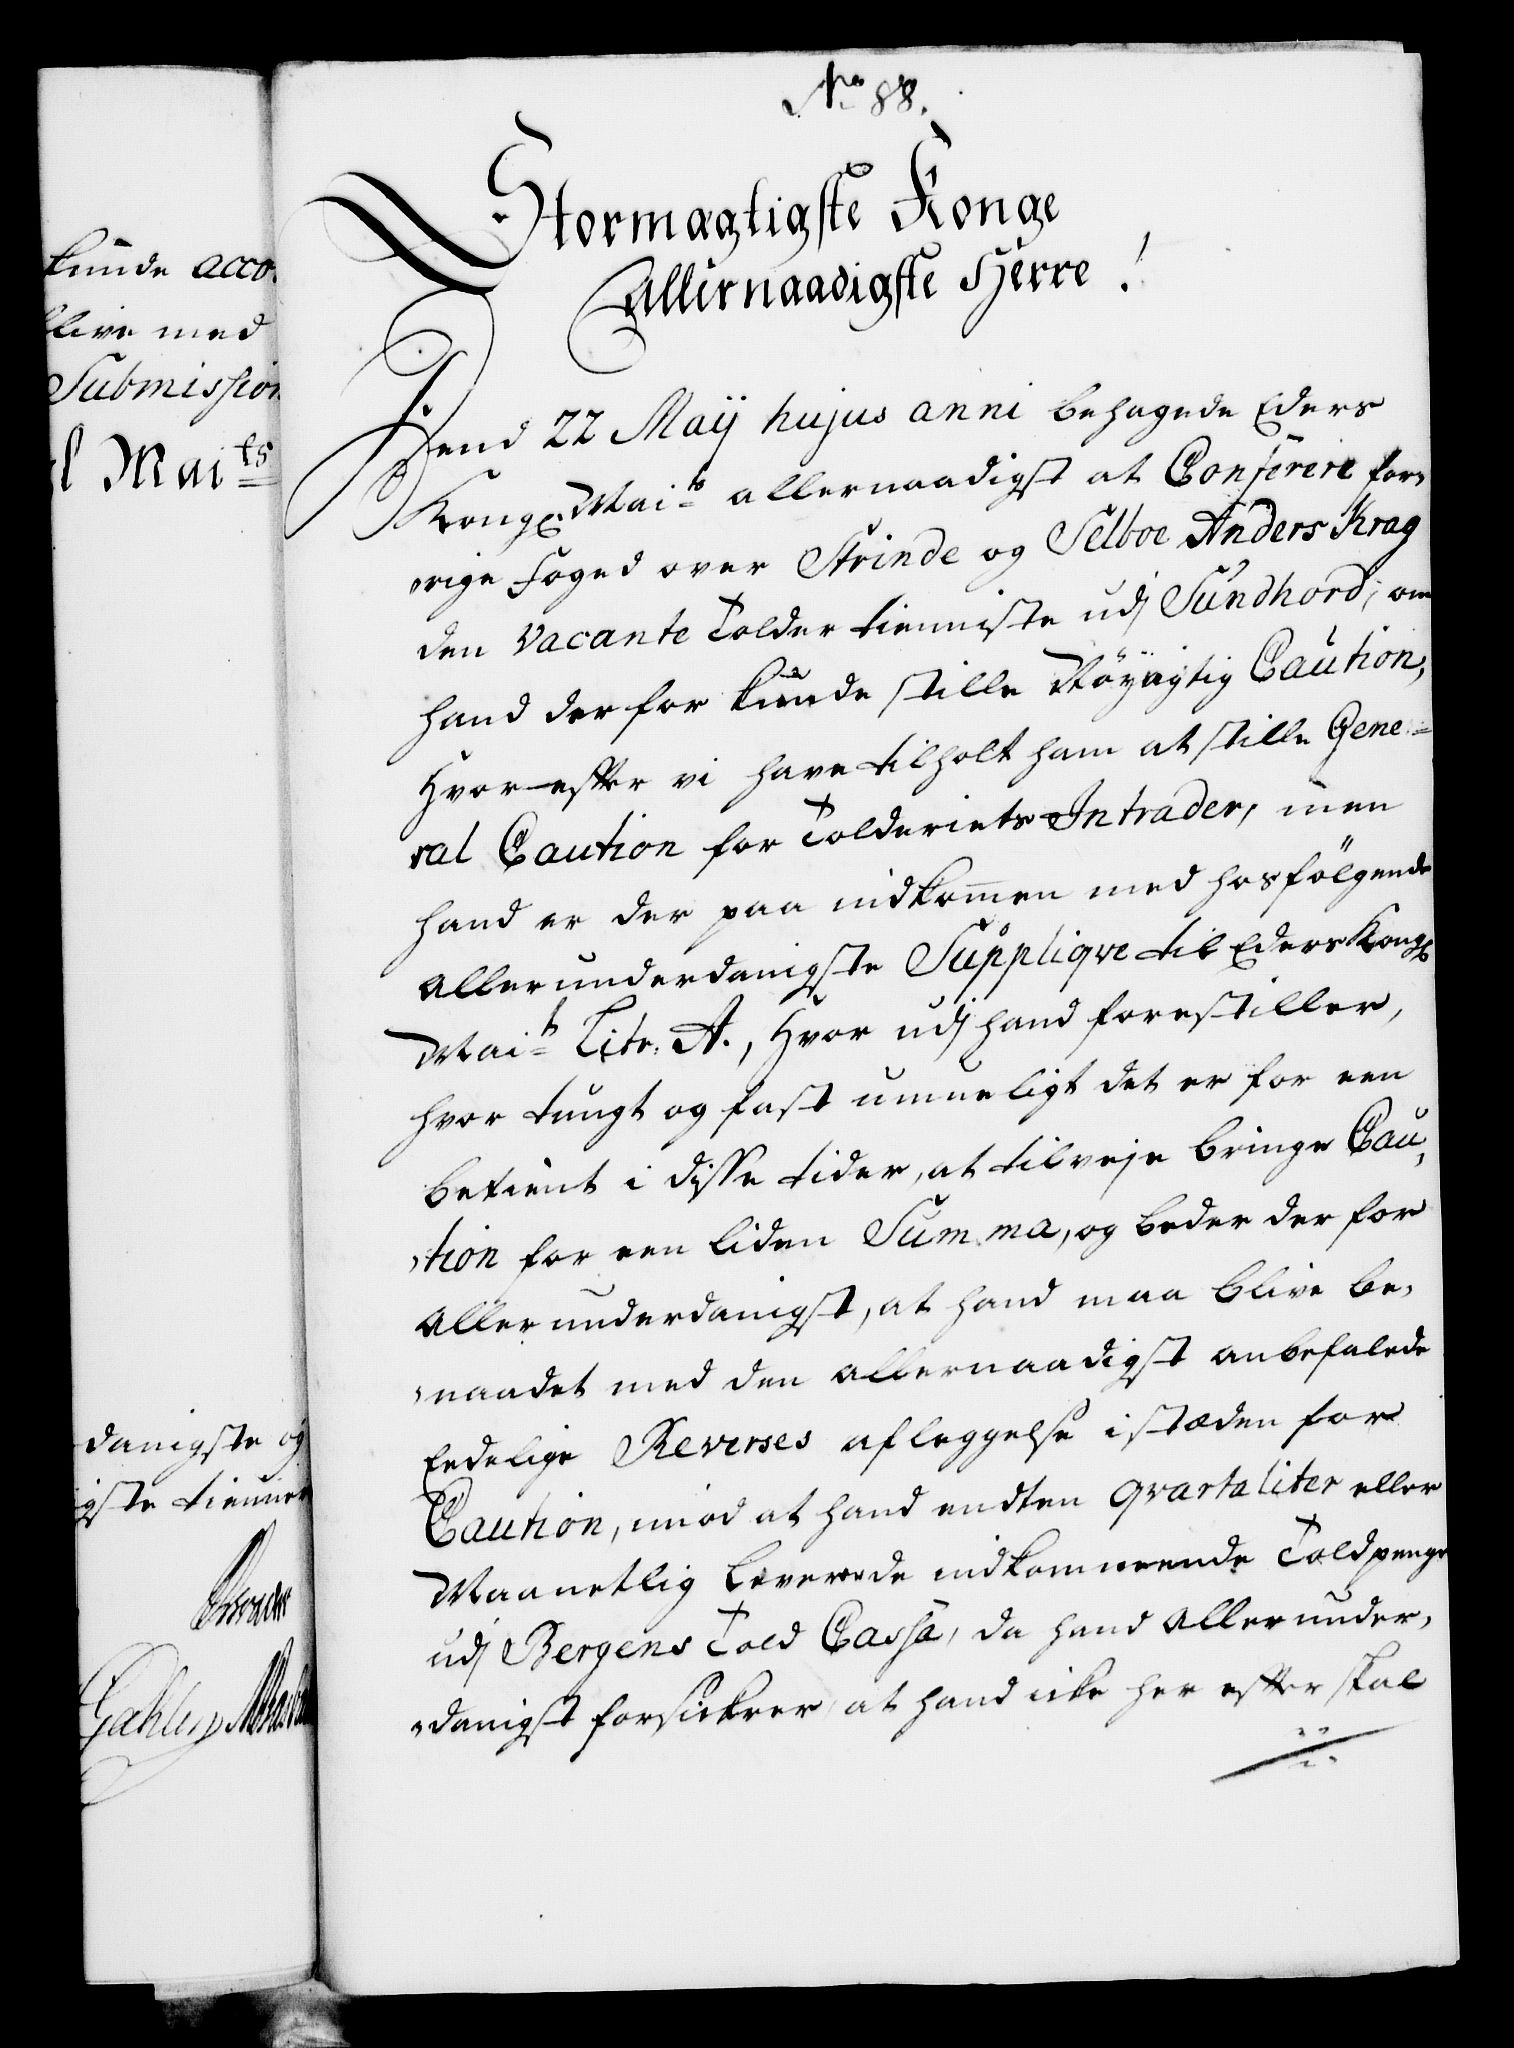 kunde acco
blive med
Submission
l Mai^ts
danigste og
igste tienner
No 88.
Stormagtigste Konge
Allernaadigste Herre!
Dend 22 Maÿ hujus anni behagede Eders
Kongl. Mai^ts allernaadigst at Conferere for„
„rige foged over Strinde og Selboe Anders Krag
den Vacante Tolder tienniste udj Sundhord, om
hand der for kunde stille Nöÿagtig Caution,
Hvor effter vi have tilholt ham at stille Gene=
ral Caution for Tolderiets Intrader, men
hand er der paa indkom̅en med hosfölgende
allerunderdanigste Suppliqve til Eders Kongl
Mai^ts Litr. A., Hvor udj hand forestiller,
hvor tungt og fast umueligt det er for een
betient i disse tider, at tilveje bringe Cau„
„tion for een liden Summa, og beder der for
allerunderdanigst, at hand maa blive be„
„naadet med den allernaadigst anbefalede
Eedelige Reverses afleggelse i stæden for
Caution, imod at hand endten qvartaliter eller
Maanetlig leverede indkommende Toldpenge
udj Bergens Told Cassa, da hand allerunder„
„danigst forsickrer at hand icke her effter skal